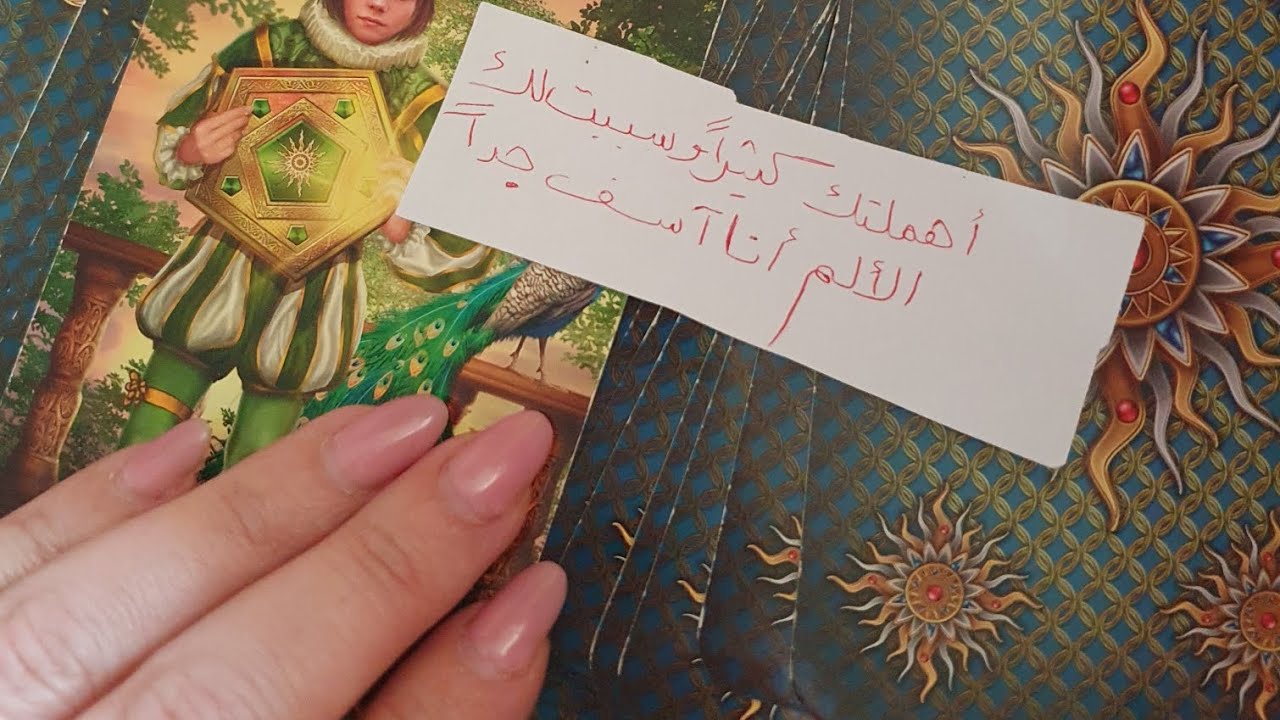 أهملتك كثيراً وسببت لك
الألم أنا آسف جداً